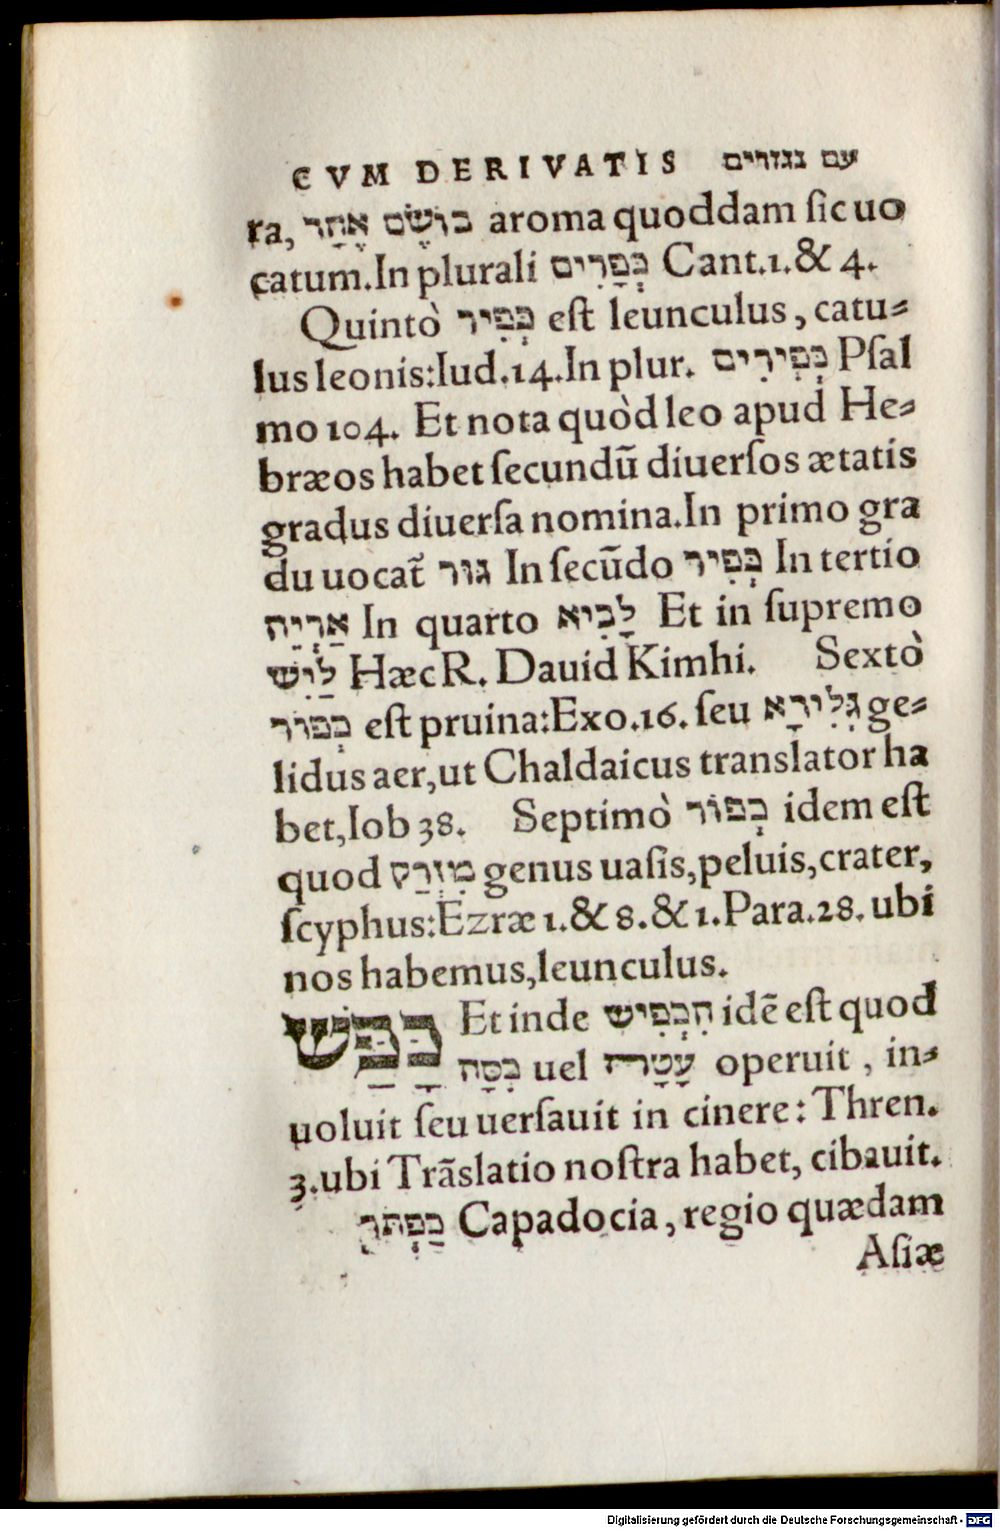 CVM DERIVATIS עם נגזרים
ra, בושֶׂם אֶחָר aroma quoddam ſic uo
catum. In plurali כְּפָרִים Cant. 1. & 4.
Quintò כְּפִיר eſt leunculus, catu⸗
lus leonis: Iud. 14. In plur. כְּפִירִים Pſal
mo 104. Et nota quòd leo apud He⸗
bræos habet ſecundũ diuerſos ætatis
gradus diuerſa nomina. In primo gra
du uocat̃ גור In ſecũdo כְּפִיר In tertio
אַרְיֵה In quarto לָבִיא Et in ſupremo
לַיִשׁ Hæc R. Dauid Kimhi. Sextò
כְּפוֹר eſt pruina: Exo. 16. ſeu גְּלִידָא ge⸗
lidus aer, ut Chaldaicus translator ha
bet, Iob 38. Septimò כְּפוֹר idem eſt
quod מִזְרַק genus uaſis, peluis, crater,
ſcyphus: Ezræ 1. & 8. & 1. Para. 28. ubi
nos habemus, leunculus.
כָּפַשׁ Et inde הִכְפִּישׁ idẽ eſt quod
כִּסָּה uel עָטָה operuit, in⸗
uoluit ſeu uerſauit in cinere: Thren.
3. ubi Trãslatio noſtra habet, cibauit.
כַּפְתֹּר Capadocia, regio quædam
Aſiæ
Digitalisierung gefördert durch die Deutsche Forschungsgemeinschaft - DFG